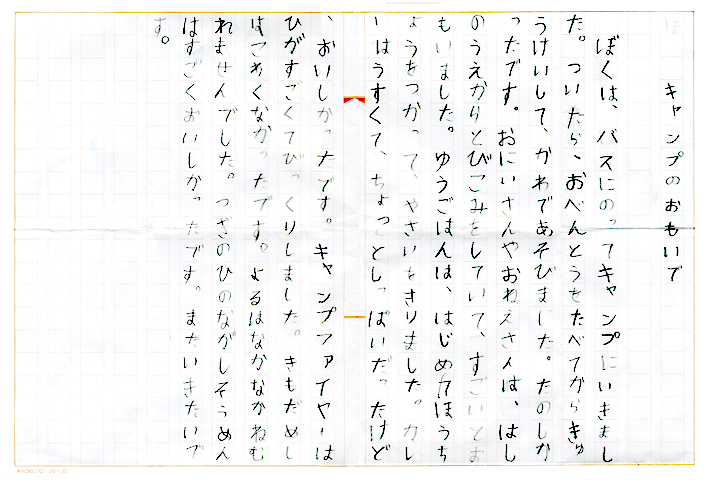 キャンプのおもいで
ぼくは、バスにのってキャンプにいきまし
た。ついたら、おべんとうをたべてからきゅ
うけいして、かわであそびました。たのしか
ったです。おにいさんやおねえさんは、はし
のうえからとびこみをしていて、すごいとお
もいました。ゆうごはんは、はじめてほうち
ょうをつかって、やさいをきりました。カレ
ーはうすくて、ちょっとしっぱいだったけど
、おいしかったです。キャンプファイヤーは
ひがすごくてびっくりしました。きもだめし
はこわくなかったです。よるはなかなかねむ
れませんでした。つぎのひのながしそうめん
はすごくおいしかったです。またいきたいで
す。